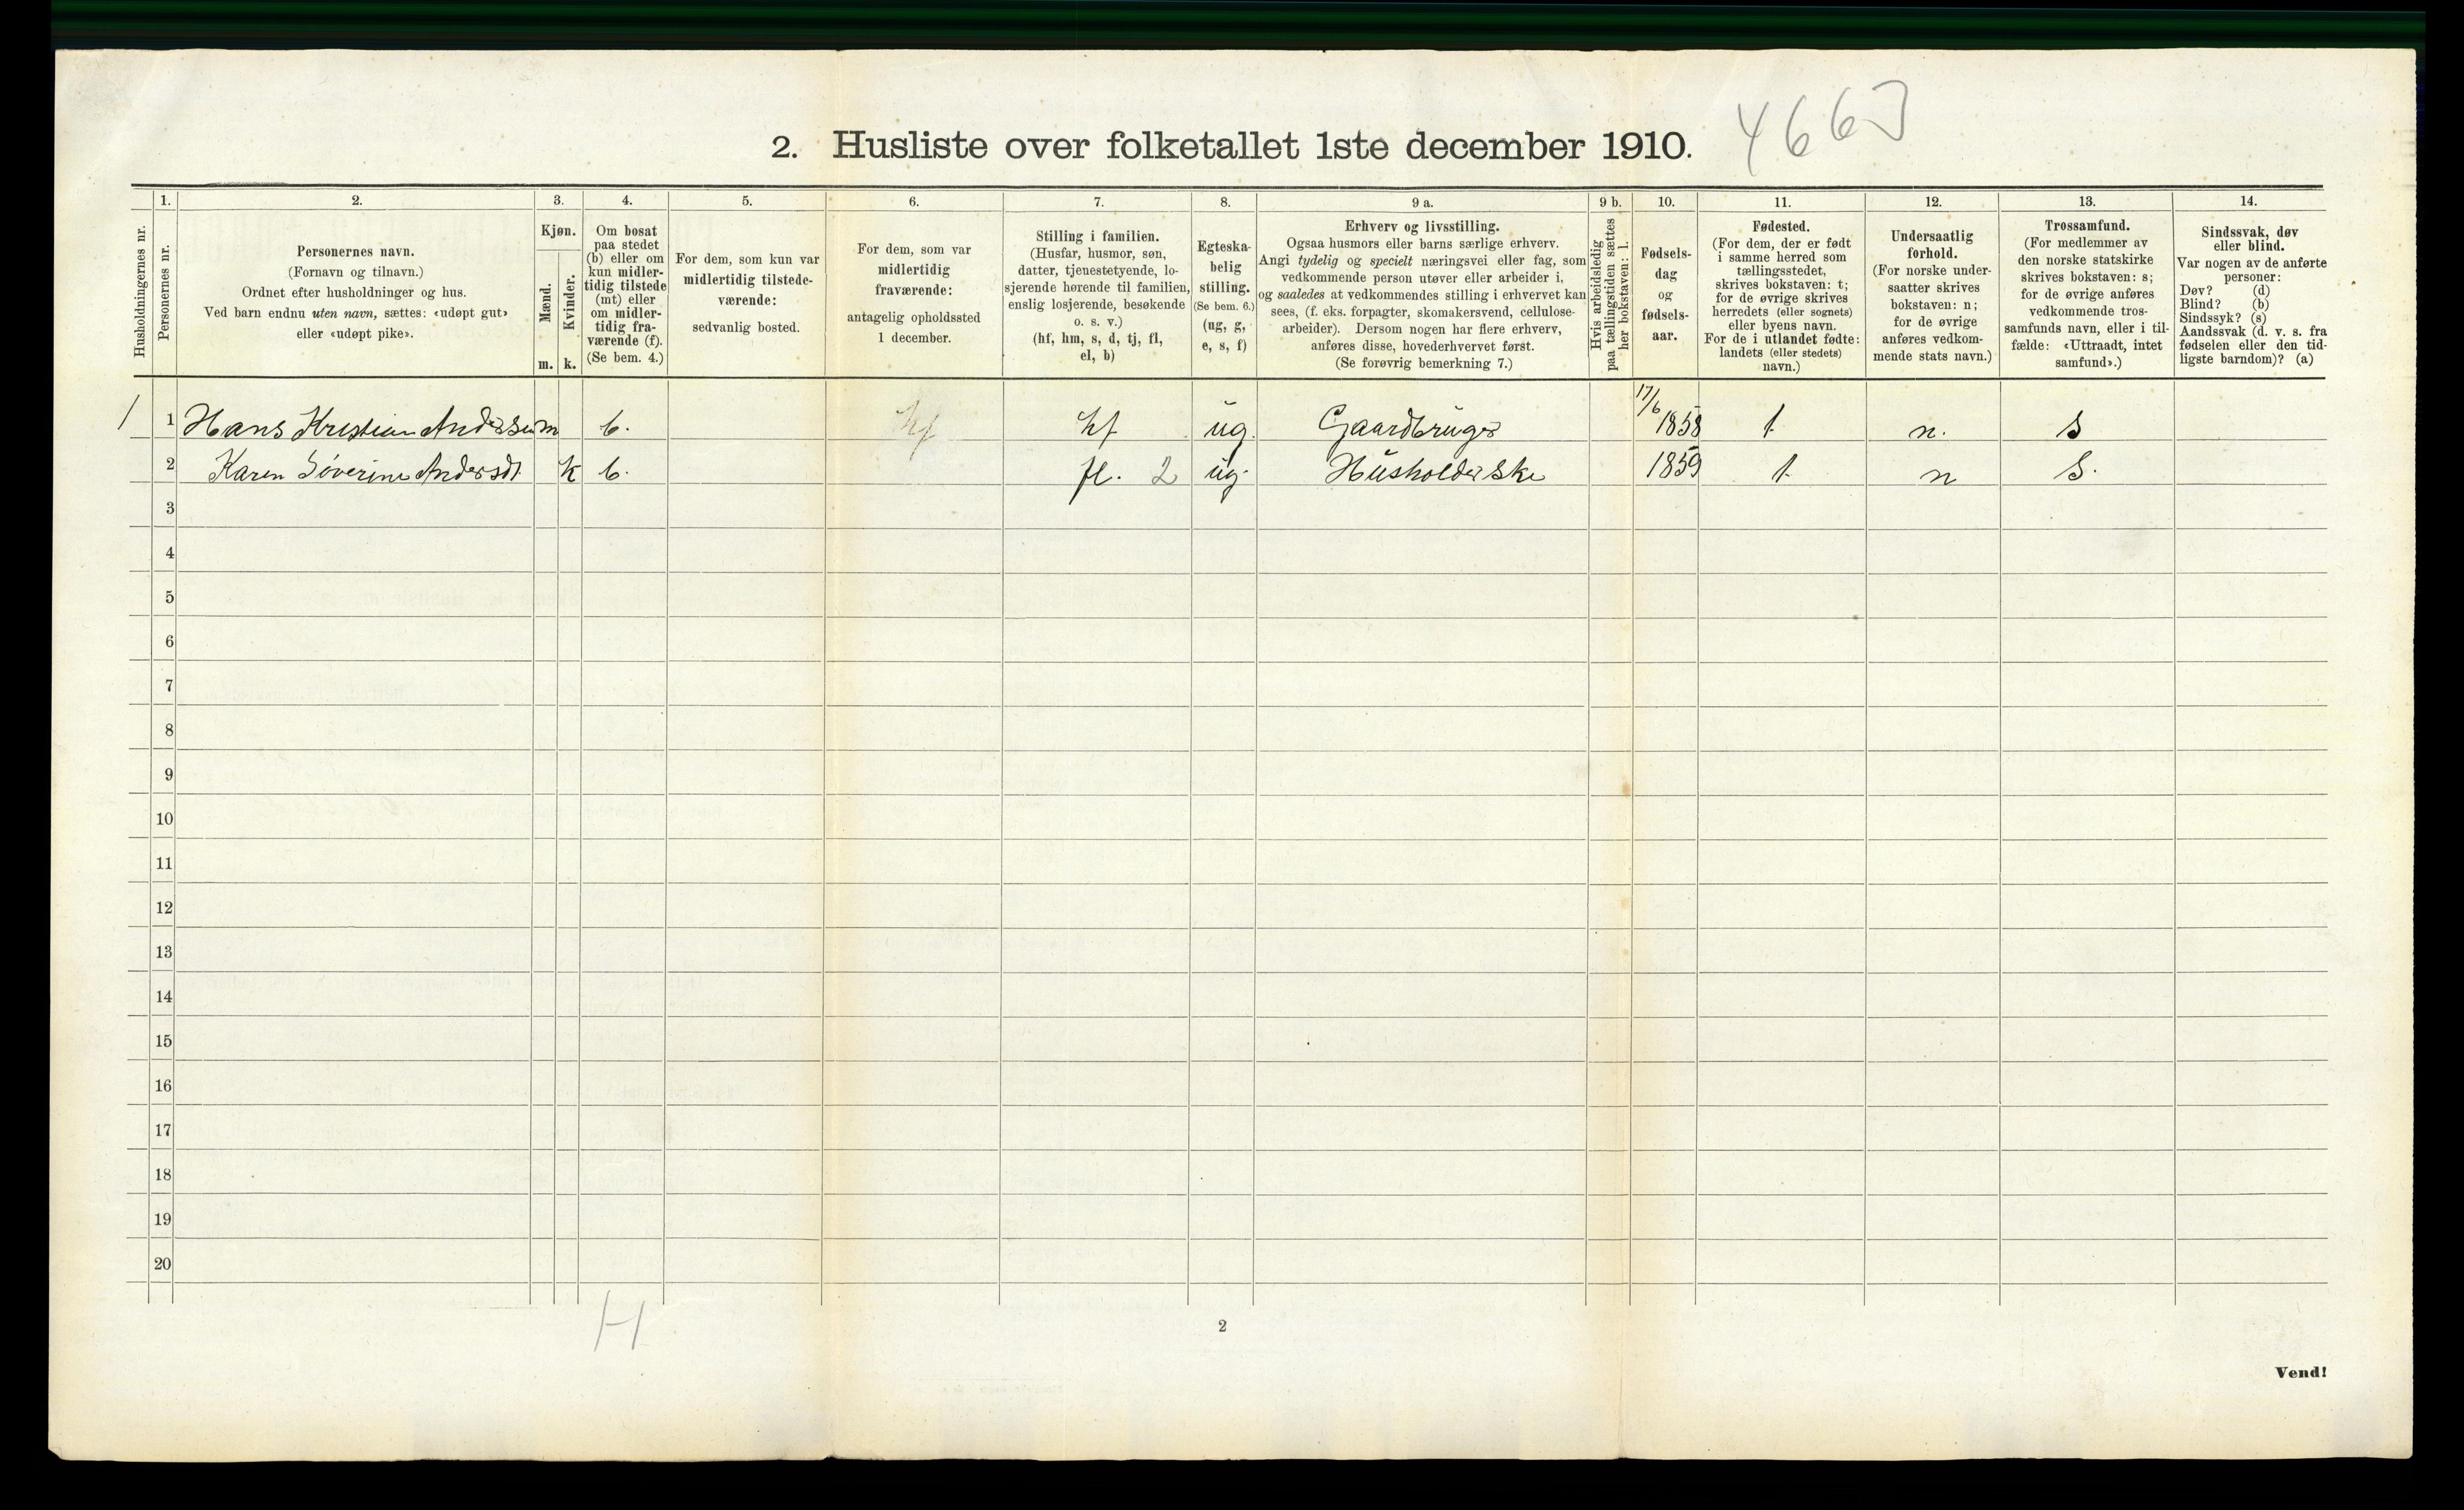 4663
2. Husliste over folketallet 1ste december 1910.
1. 2. 3. 4. 5. 6. 7. 8. 9 a. 9 b. 10. 11. 12. 13. 14.
Husholdningernes nr.
Personernes nr.
Personernes navn.
(Fornavn og tilnavn.)
Ordnet efter husholdninger og hus.
Ved barn endnu uten navn, sættes: «udøpt gut»
eller «udøpt pike».
Kjøn.
Mænd.
Kvinder.
m. k.
Om bosat
paa stedet
(b) eller om
kun midler-
tidig tilstede
(mt) eller
om midler-
tidig fra-
værende (f).
(Se bem. 4.)
For dem, som kun var
midlertidig tilstede-
værende:
sedvanlig bosted.
For dem, som var
midlertidig
fraværende:
antagelig opholdssted
1 december.
Stilling i familien.
(Husfar, husmor, søn,
datter, tjenestetyende, lo-
sjerende hørende til familien,
enslig losjerende, besøkende
o. s. v.)
(hf, hm, s, d, tj, fl,
el, b)
Egteska-
belig
stilling.
(Se bem. 6.)
(ug, g,
e, s, f)
Erhverv og livsstilling.
Ogsaa husmors eller barns særlige erhverv.
Angi tydelig og specielt næringsvei eller fag, som
vedkommende person utøver eller arbeider i,
og saaledes at vedkommendes stilling i erhvervet kan
sees, (f. eks. forpagter, skomakersvend, cellulose-
arbeider). Dersom nogen har flere erhverv,
anføres disse, hovederhvervet først.
(Se forøvrig bemerkning 7.)
Hvis arbeidsledig
paa tællingstiden sættes
her bokstaven: l.
Fødsels-
dag
og
fødsels-
aar.
Fødested.
(For dem, der er født
i samme herred som
tællingsstedet,
skrives bokstaven: t;
for de øvrige skrives
herredets (eller sognets)
eller byens navn.
For de i utlandet fødte:
landets (eller stedets)
navn.)
Undersaatlig
forhold.
(For norske under-
saatter skrives
bokstaven: n;
for de øvrige
anføres vedkom-
mende stats navn.)
Trossamfund.
(For medlemmer av
den norske statskirke
skrives bokstaven: s;
for de øvrige anføres
vedkommende tros-
samfunds navn, eller i til-
fælde: «Uttraadt, intet
samfund».)
Sindssvak, døv
eller blind.
Var nogen av de anførte
personer:
Døv? (d)
Blind? (b)
Sindssyk? (s)
Aandssvak (d. v. s. fra
fødselen eller den tid-
ligste barndom)? (a)
1 1 Hans Kristian Andersen m b. hf hf ug. Gaardbruger 17/6 1858 t n. s
2 Karen Severine Andersdt. k b. fl. 2 ug. Husholderske 1859 t n s.
3
4
5
6
7
8
9
10
11
12
13
14
15
16
17
18
19
20
H
2
Vend!